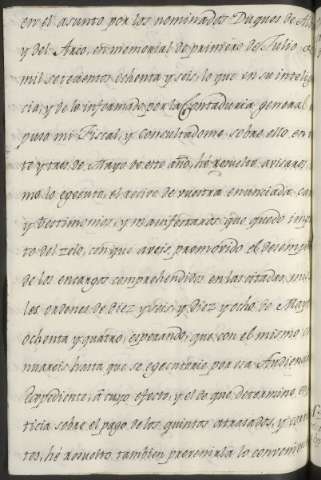 en el asunto por los nominados Duques de
y del Arco, en memorial de primero de Julio
mil setecientos ochenta y seis, lo que en su intelig
cia, y de lo informado por la Contaduria general
puso mi Fiscal, y consultadome, sobre ello en
te y tres de Mayo de este año, he resuelto avisaros,
mo lo egecuto, el recivo de vuestra enunciada ca
y Testimonios, y manifestaros que quedo
to del zelo, con que aveis promovido el desemp
de los encargos comprehendidos en las citadas
les ordenes de diez y seis, y Diez y ocho de Mayo
ochenta y quatro; esperando, que con el mismo
nuareis hasta que se egecutorie por esa Audienc
Expediente, à cuyo efecto, y el de que determine
ticia sobre el pago de los quintos atrasados, y
tos, hé resuelto tambien prevenirla lo conveni